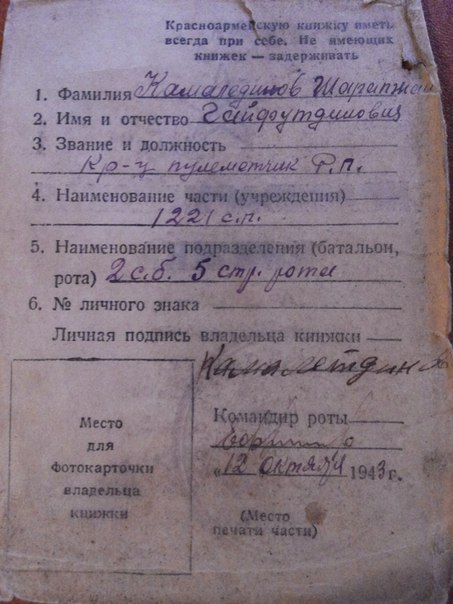 Красноармейскую книжку иметь
всегда при себе. Не имеющих
книжек — задерживать
1. Фамилия Камалединов Шарапжан
2. Имя и отчество Гайфутдинович
3. Звание и должность
Кр-ц пулеметчик Р.П.
4. Наименование части (учреждения)
1221 с.п.
5. Наименование подразделения (батальон,
рота) 2 с.б. 5 стр. рота
6. № личного знака
Личная подпись владельца книжки
Место
для
фотокарточки
владельца
книжки
Командир роты
„12 октября 1943 г.
(Место
печати части)